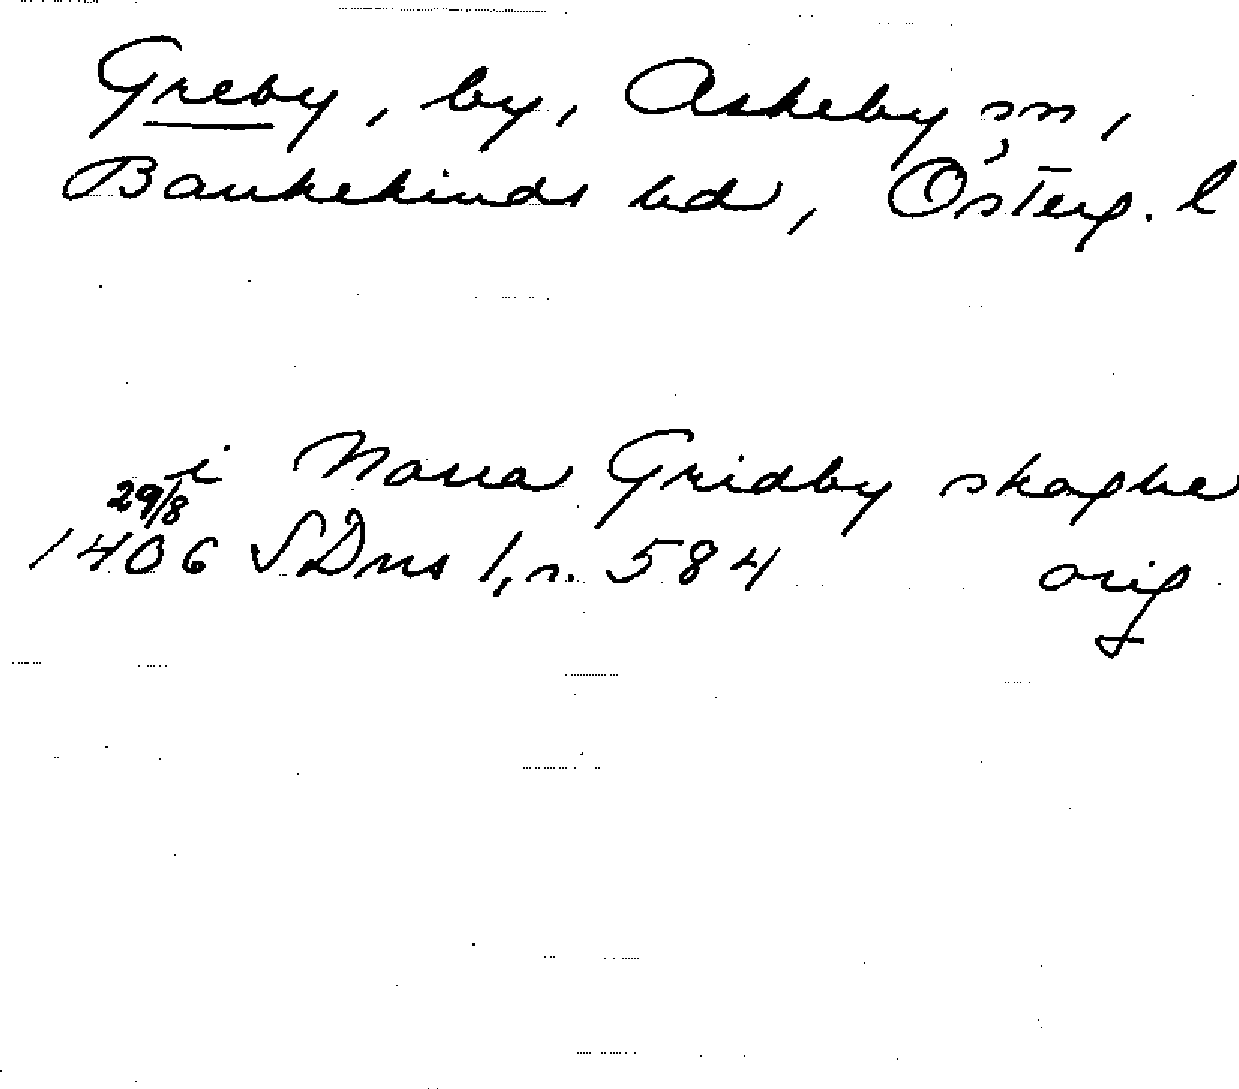 Greby, by, Askeby sn,
Bankekinds hd, Österg. l
i Norra Gridby skoghe
29/8
1406 SDns 1, s. 584 orig